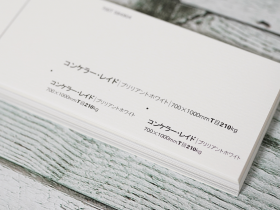 コンケラー・レイド | ブリリアントホワイト | 700×1000mm T目210kg
コンケラー・レイド | ブリリアントホワイト
700×1000mm T目210kg
コンケラー・レイド | ブリリアントホワイト
700×1000mm T目210kg